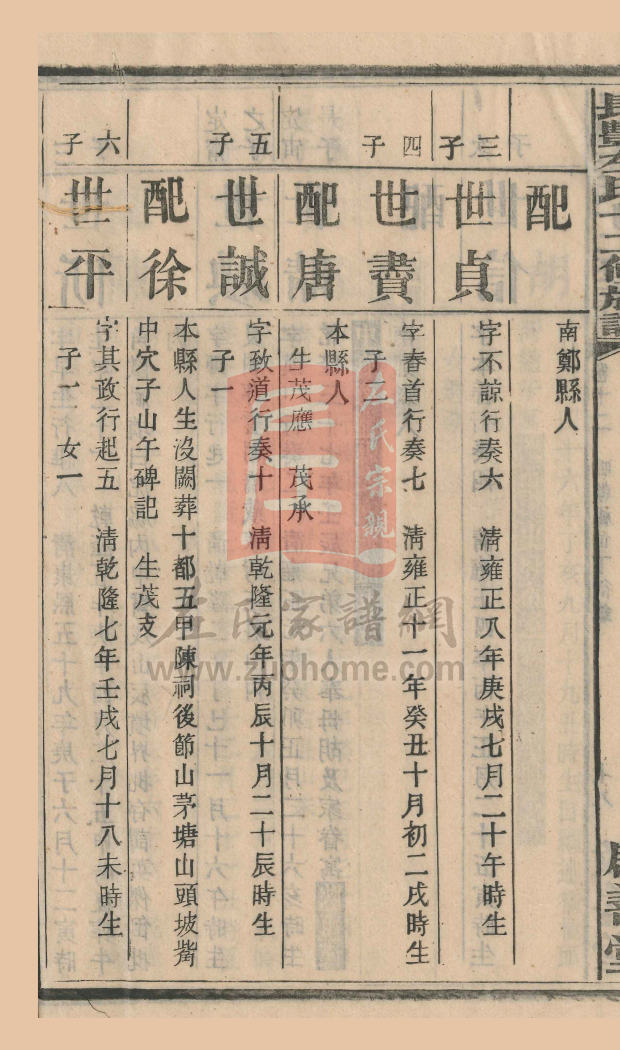 配
南鄭縣人
三子
世貞
字不諒行奏六 清雍正八年庚戌七月二十午時生
四子
世賚
字春首行奏七 清雍正十一年癸丑十月初二戌時生
子二
配唐
本縣人
生茂應 茂承
五子
世誠
字致道行奏十 清乾隆元年丙辰十月二十辰時生
子一
配徐
本縣人生沒闕葬十都五甲陳祠後節山茅塘山頭坡觜
中穴子山午碑記 生茂支
六子
世平
字其政行起五 清乾隆七年壬戌七月十八未時生
子一 女一
左氏宗親
左氏家譜網
www.zuohome.com